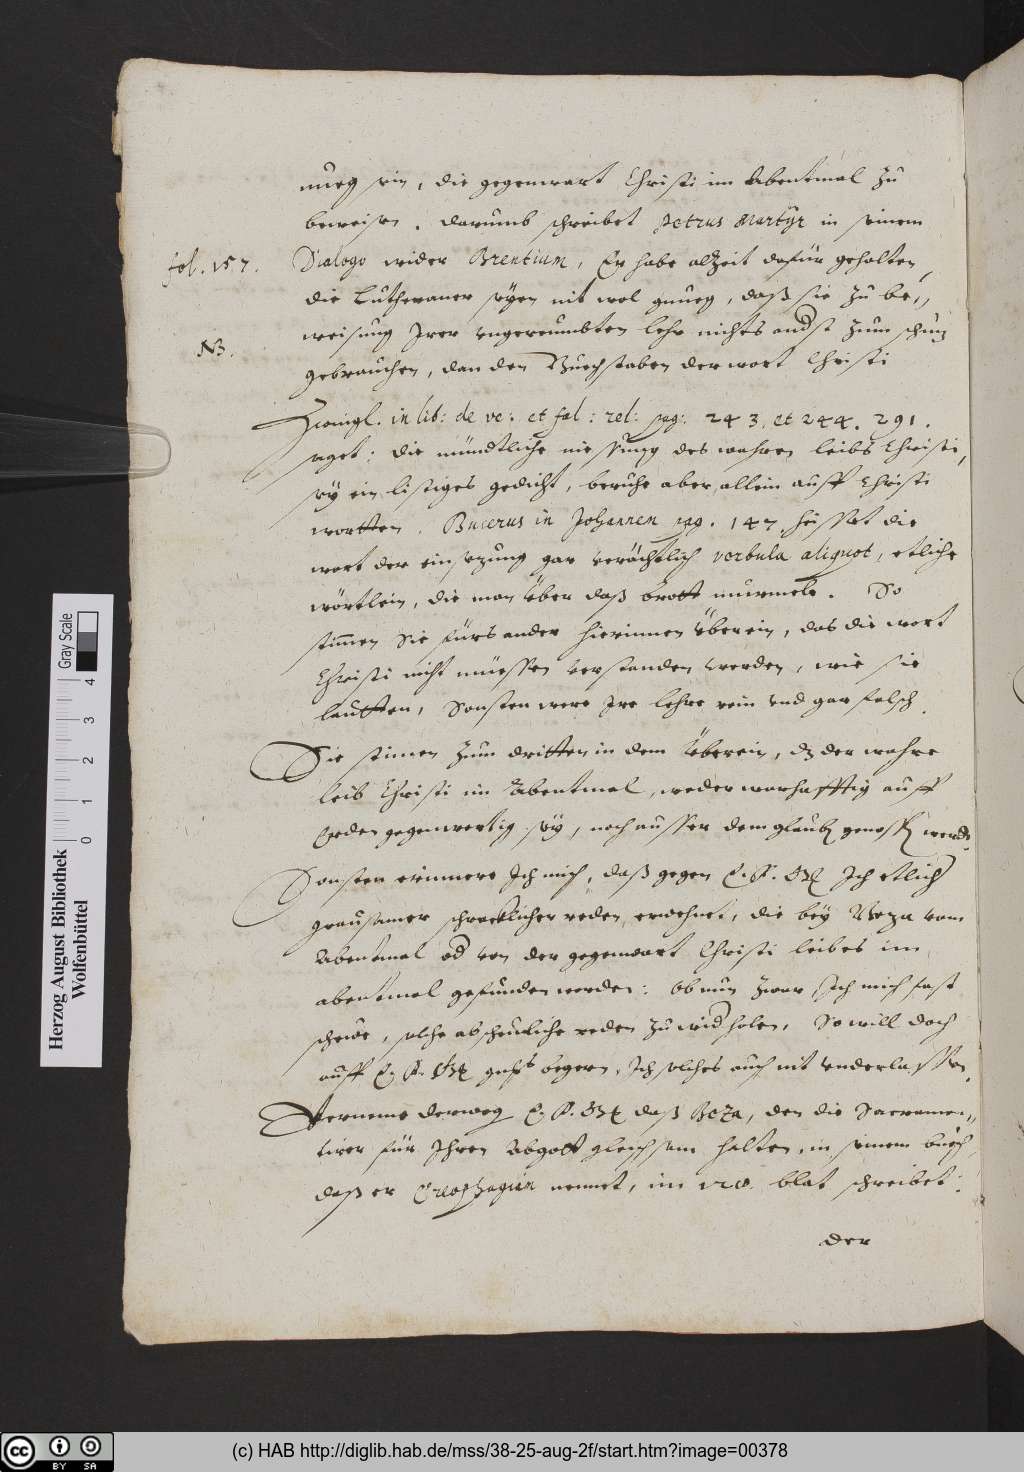 nueg sein, die gegenwart Christi im Abentmal zu
beweisen. Darumb schreibet Petrus Martyr in seinem
fol. 157. Dialogo wider Brentium, Er habe alzeit dafür gehalten,
die Lutheraner seyen nit wol gnueg, daß sie zu be„
weisung Irer ungereumbten lehr nichts anderst zum schuz
NB.
gebrauchen, dan den Buechstaben der wort Christi
Zwingl. in lib: de ve: et fal: rel: pag: 243. et 244. 291.
saget: die mündtliche niessung des wahren leibs Christi,
sey ein listiges gedicht, beruhe aber allein auff Christi
wortten. Bucerus in Johannem pag. 147. heisset die
wort der einsezung gar verächtlich verbula aliquot, etliche
wörtlein, die man über daß brott murmele. So
stimen Sie fürs ander hierinnen überein, das die wort
Christi nicht müessen verstanden werden, wie sie
lautten, Sonsten were Ire lehre rein und gar falsch.
Sie stimen zum dritten in dem überein, dz der wahre
leib Christi im Abentmal, weder warhafftig auff
Erden gegenwertig sey, noch ausser dem glaub genossen werde.
Sonsten erinnere Ich mich, daß gegen E. F. G. Ich etlich
grausamer schrecklicher reden erwehnet, die bey Beza vom
Abentmal od von der gegenwart Christi leibes im
abentmal gefunden werden: Ob nun zwar Ich mich fast
schewe, solche abscheuliche reden zu widholen, So will doch
auff E. F. G. begern, Ich solches auch nit underlassen.
Verneme derweg E. F. G. daß Beza, den die Sacramen„
tirer für Ihren Abgott gleichsam halten, in seinem buech
daß er Creophagiam nennet, im blat schreibet:
der
Herzog August Bibliothek
Wolfenbüttel
Gray Scale
0 1 2 3 4
cc BY SA
(c) HAB http://diglib.hab.de/mss/38-25-aug-2f/start.htm?image=00378